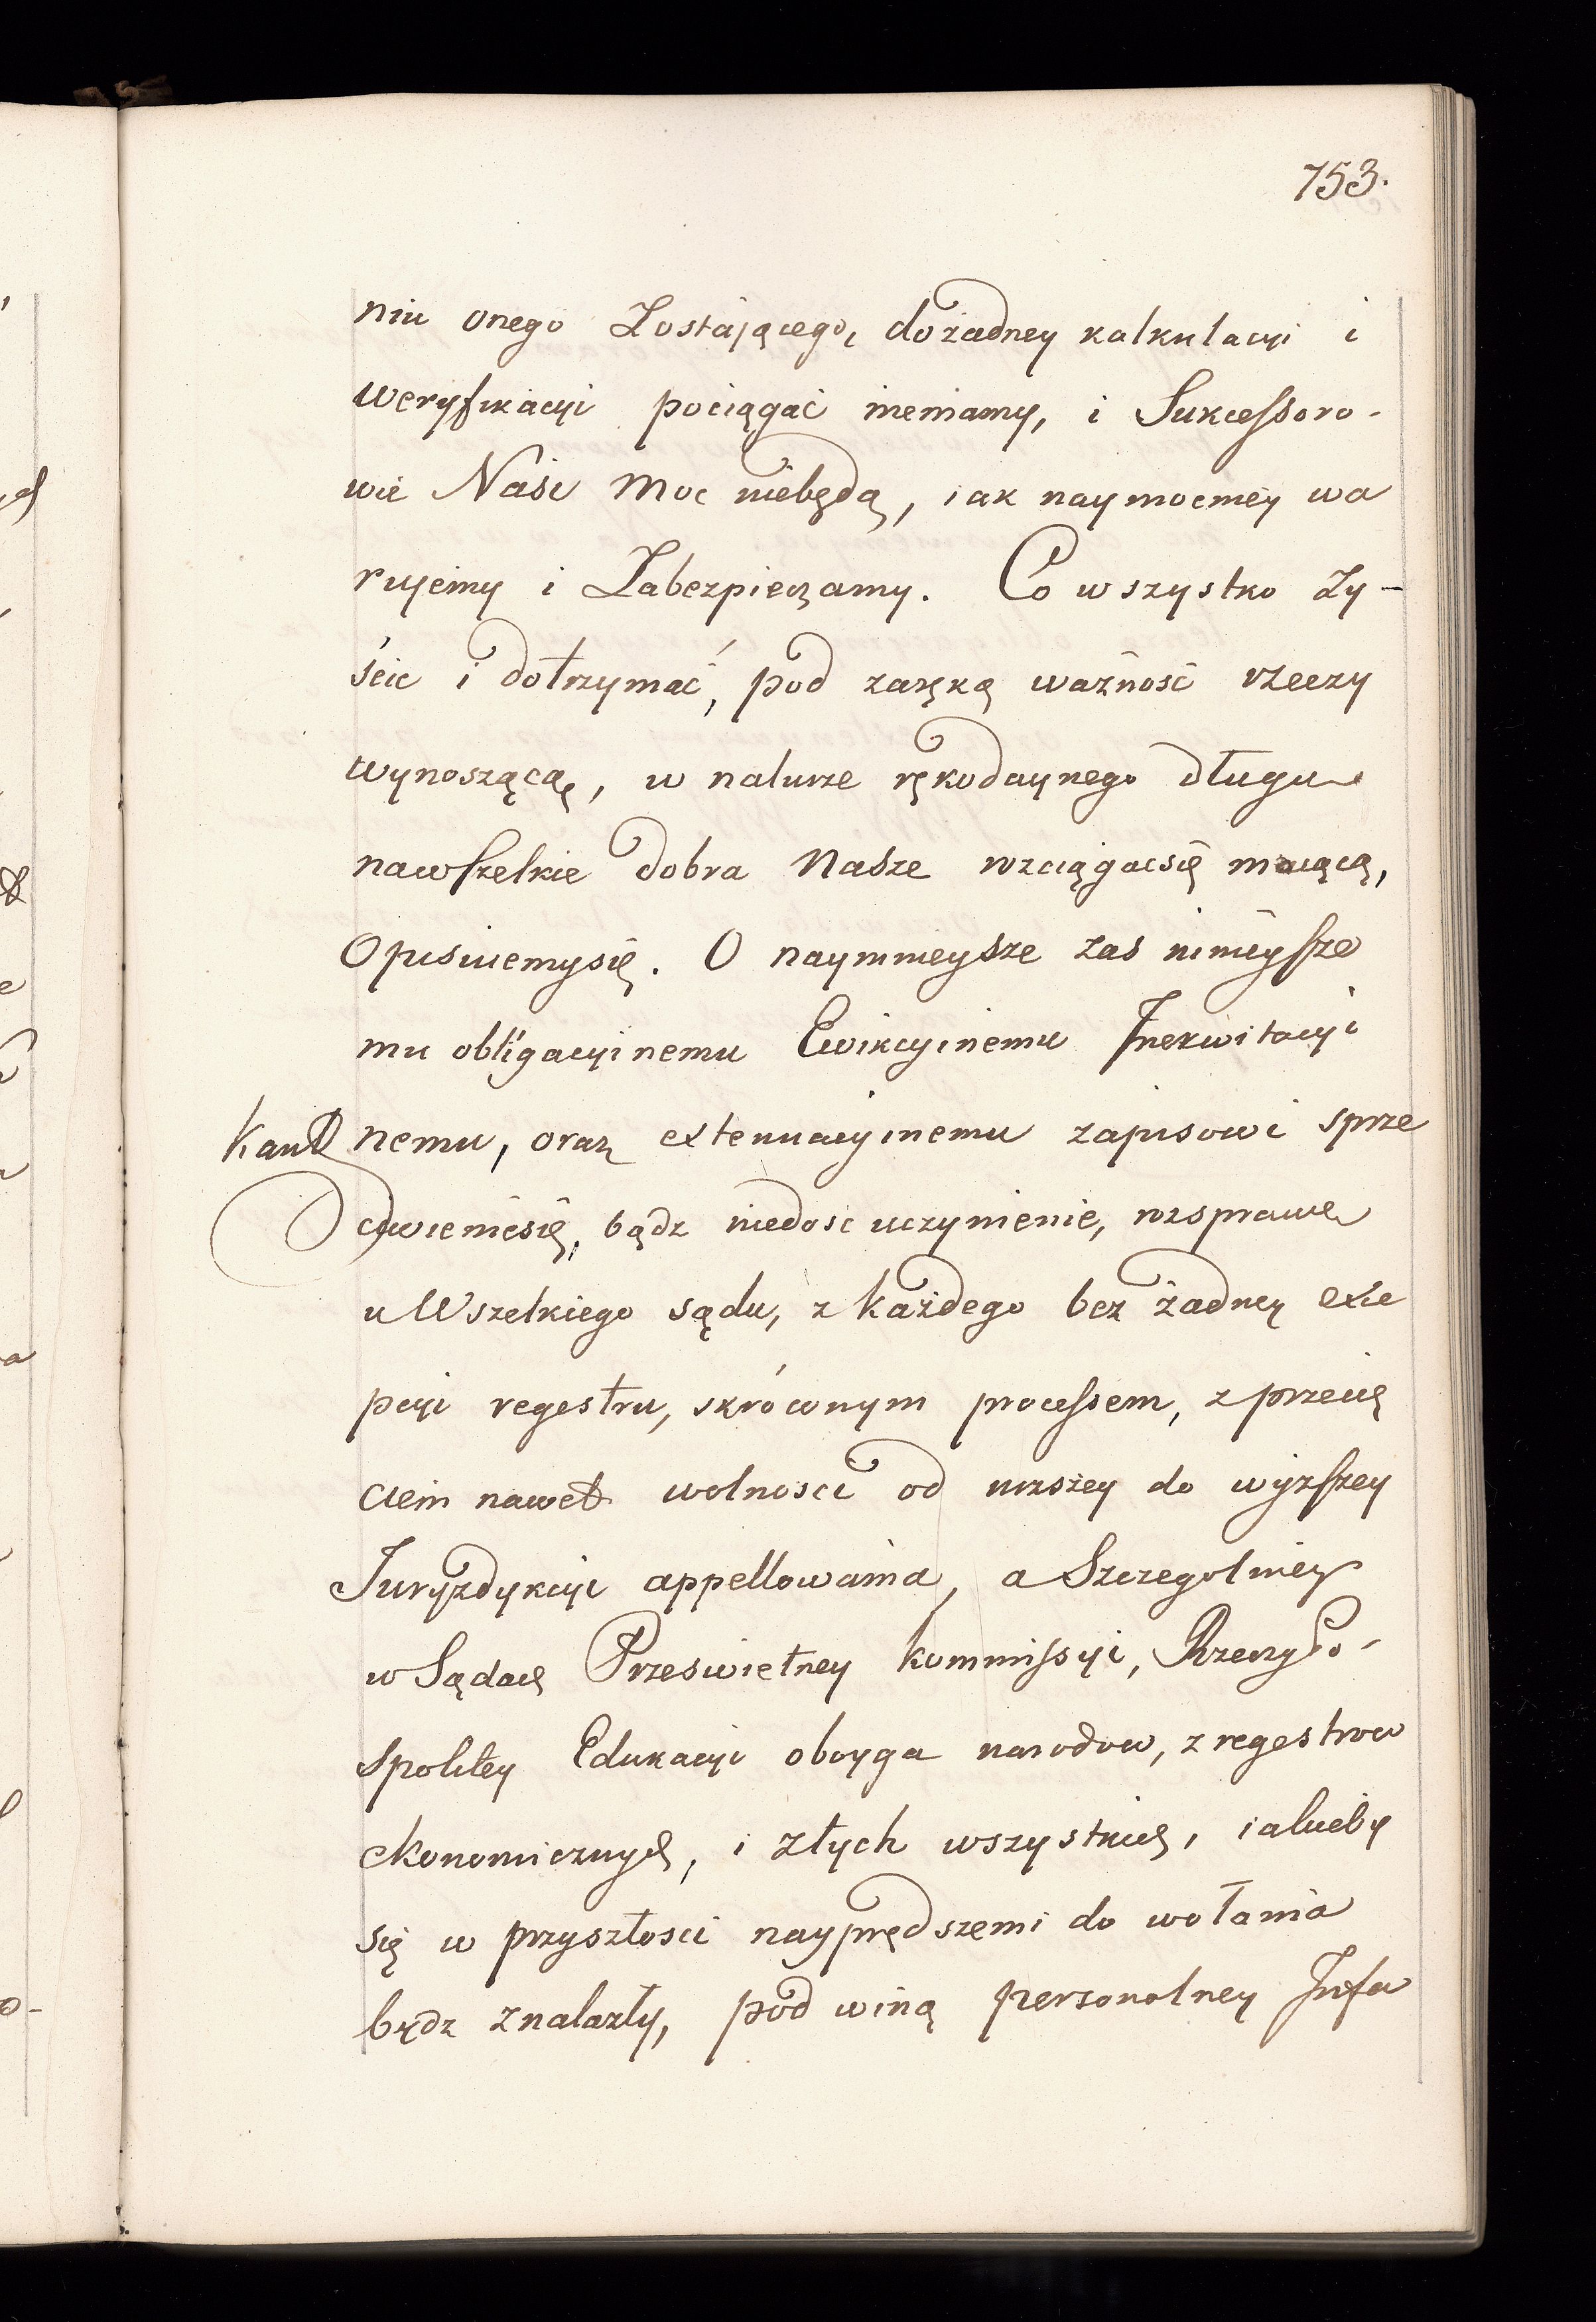 753.
niu onego Zostającego, dożadney kalkulacyi i
weryfikacyi pociągać niemamy, i Sukcessoro-
wie Nasi Moc niebędą, iak naymocniey wa
ruiemy i Zabezpieczamy. Co wszystko Zy-
ścić i dotrzymać, pod zaręką ważność rzeczy
wynoszącą, w naturze rękodaynego długu
nawszelkie dobra Nasze rozciągacsię maiącą,
Opisuiemysię. O naymnieysze zas ninieysze
mu obligacyinemu Ewikcyinemu Inekwitacyi
nemu, oraz extenuacyinemu zapisowi sprze
ciwieniesię, bądz niedosc uczynienie, rozsprawę
u Wszelkiego sądu, z każdego bez żadney exce
pcyi regestru, skróconym processem, z przecię
ciem nawet wolnosci od nizszey do wyzszey
Juryzdykcyi appellowania, a Szczegolniey
w Sądach Przeswietney kommissyi, Rzeczy Po-
spolitey Edukacyi oboyga narodow, z regestrow
ekonomicznych, i złych wszystkich, iakieby
się w przyszłosci nayprędszemi do wołania
bądz znalazły, pod winą personalney Infa